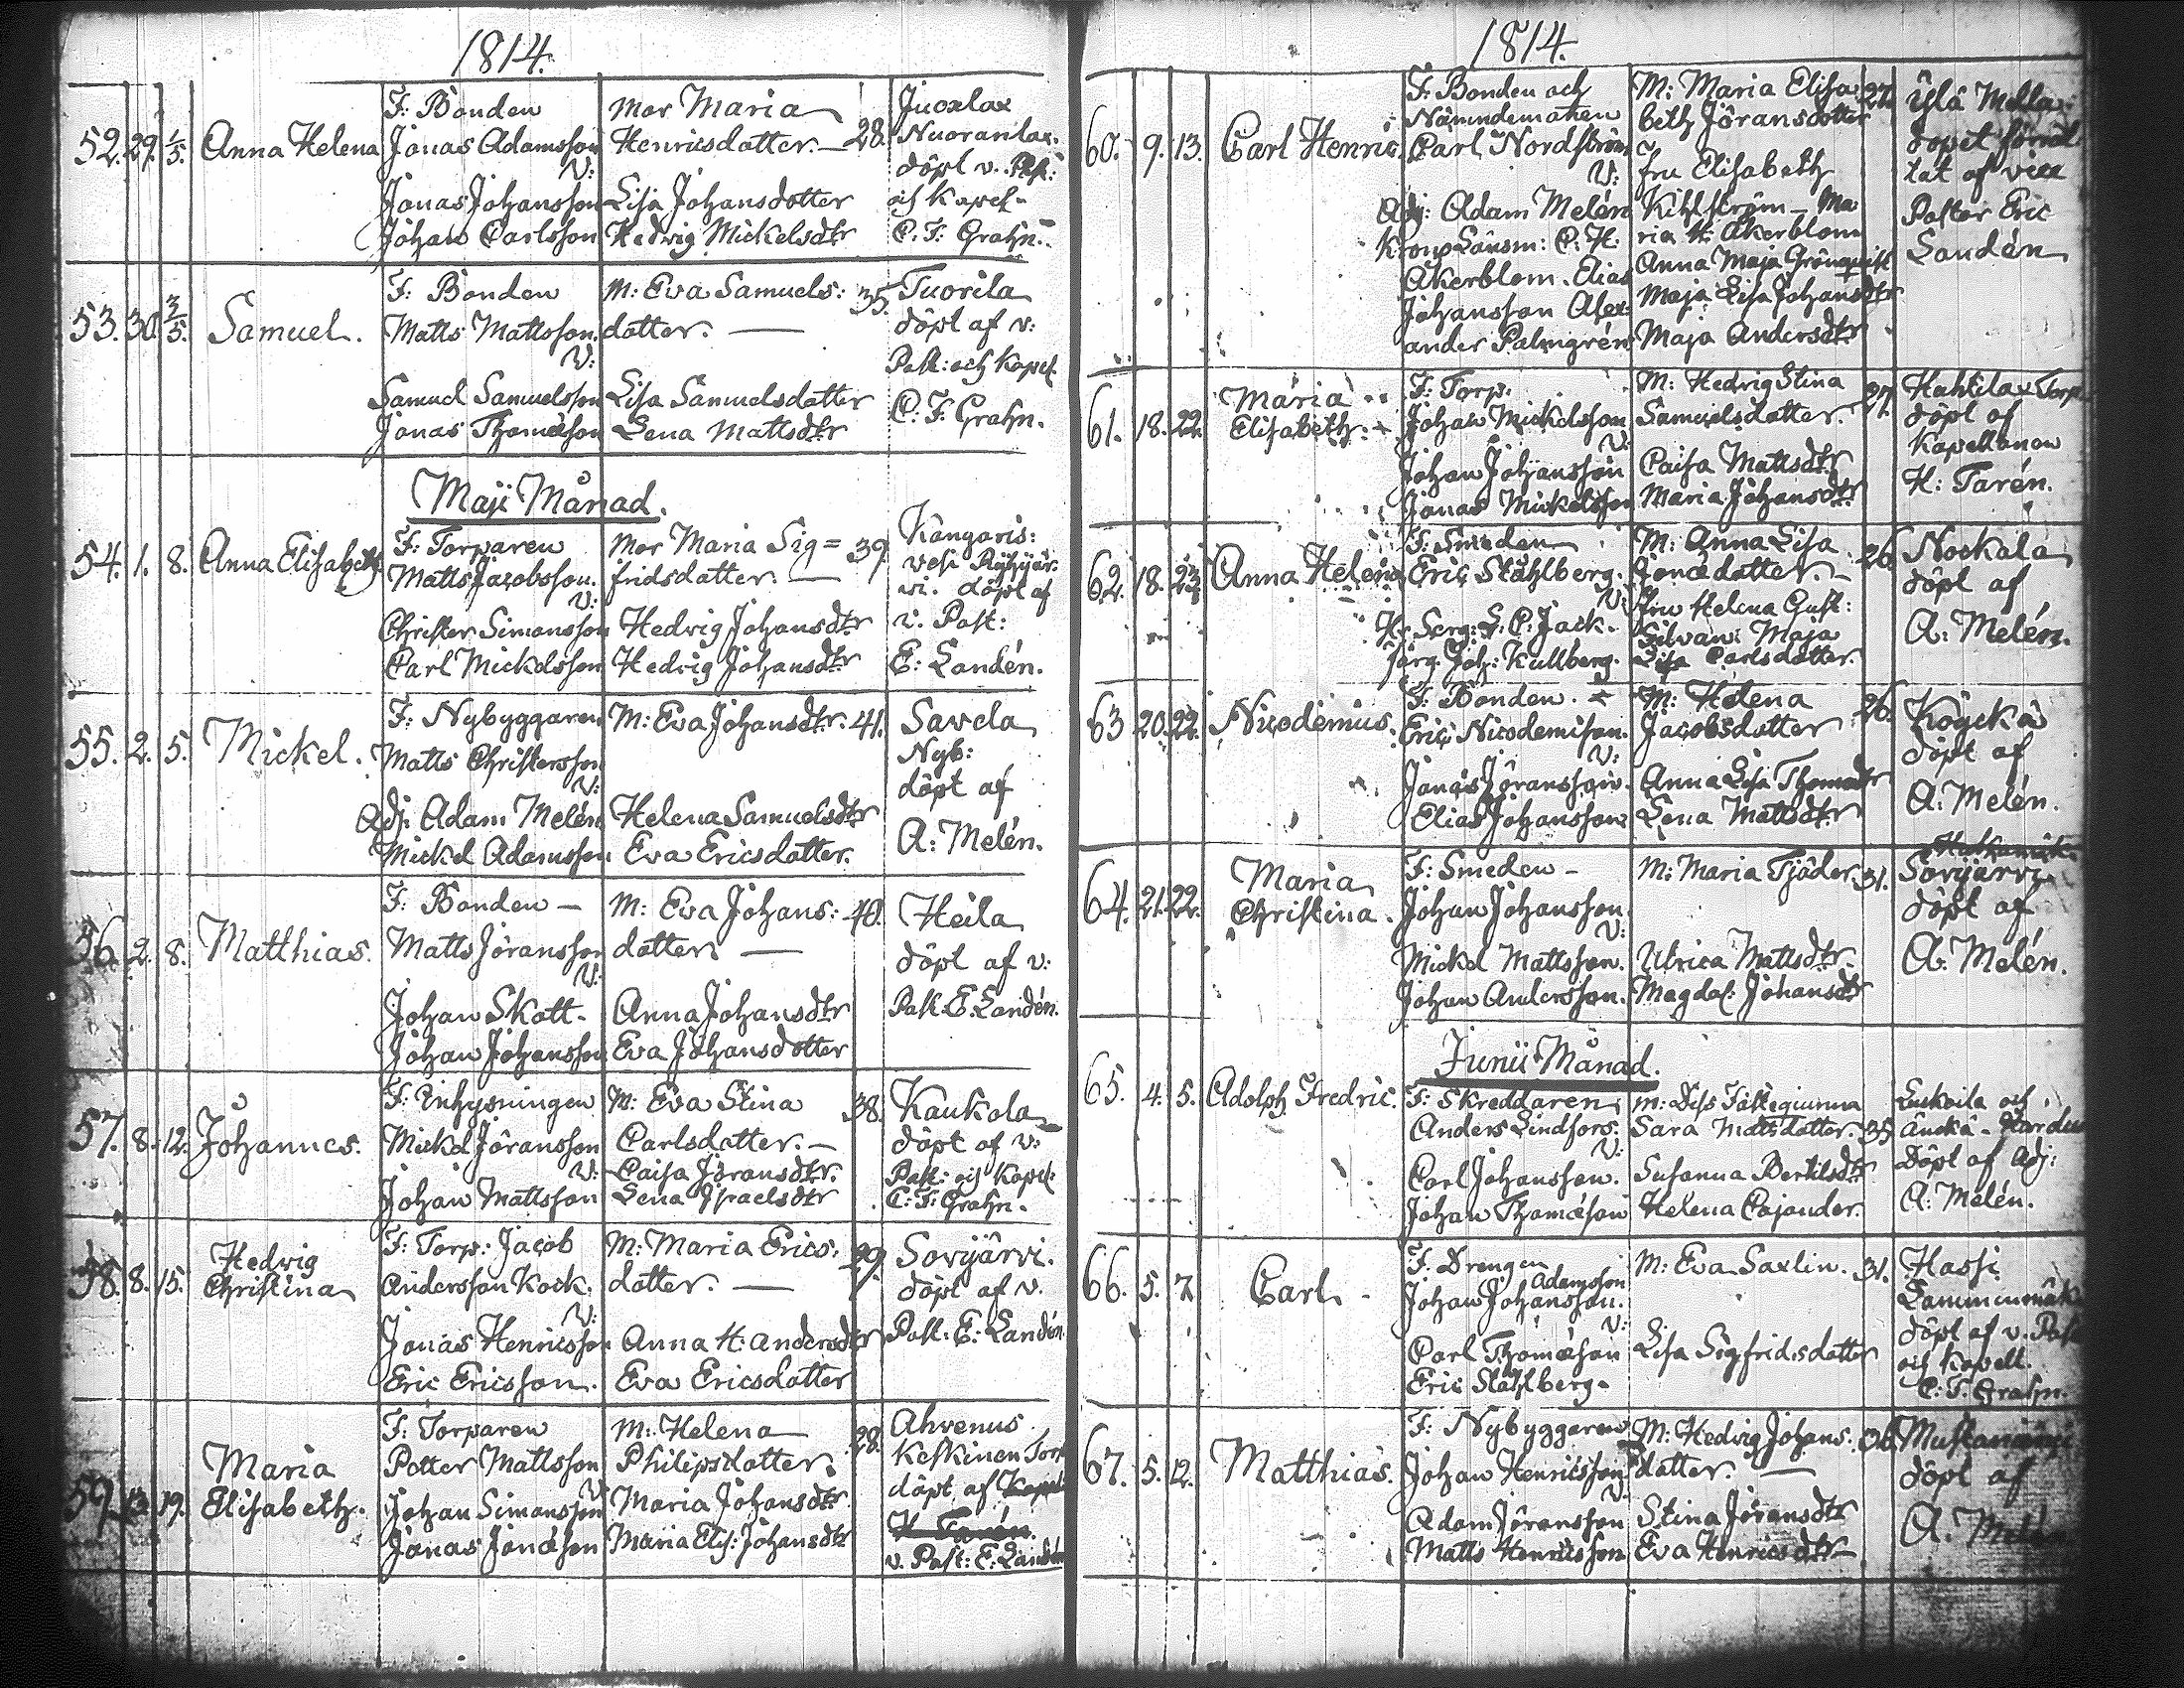 1814.
52. 29. 1/5. Anna Helena
F: Bonden
Jonas Adamsson
V:
Jonas Johansson
Johan Carlsson
Mor Maria
Henricsdatter. — 28.
Lisa Johansdotter
Hedvig Mickelsdtr
Nuoranlax.
döpt v. Past:
och Kapel-
C. F. Grahn.
53. 30. 3/5. Samuel.
F: Bonden
Matts Mattsson.
V:
Samuel Samuelsson
Jonas Thomæson
M: Eva Samuels: 35.
datter. —
Lisa Samuelsdatter
Lena Mattsdtr
Tuorila
döpt af v:
Past: och Kapel.
C. F. Grahn.
Maji Månad.
54. 1. 8. Anna Elisabeth
F: Torparen
Matts Jacobsson.
V:
Christer Simonsson
Carl Mickelsson
Mor Maria Sig= 39.
fridsdatter. —
Hedvig Johansdtr
Hedvig Johansdtr
Kangaris:
vesi Ryhyjär
vi. döpt af
v. Past:
E: Landén.
55. 2. 5. Mickel.
F: Nybyggaren
Matts Christersson
V:
Adj: Adam Melén
Mickel Adamsson
M: Eva Johansdtr. 41.
Helena Samuelsdtr
Eva Ericsdatter.
Savela
Nyb:
döpt af
A: Melén.
56. 2. 8. Matthias.
F: Bonden —
Matts Jöransson
V:
Johan Skott.
Johan Johansson
M: Eva Johans: 40.
datter. —
Anna Johansdtr
Eva Johansdotter
Heila
döpt af v:
Past. E. Landén.
57. 8. 12. Johannes.
F: Inhysningen
Mickel Jöransson
V:
Johan Mattsson
M: Eva Stina 38.
Carlsdatter. —
Caisa Jöransdtr.
Lena Israelsdtr
Kaukola
döpt af v:
Past: och Kapel:
C: F: Grahn.
58. 8. 15. Hedvig
Christina
F: Torp: Jacob
Andersson Kock.
V:
Jonas Henricsson
Eric Ericsson.
M: Maria Erics: 29.
datter. —
Anna H: Andersdtr
Eva Ericsdatter
Sorvijärvi.
döpt af v.
Past: E: Landén.
59. 13. 19. Maria
Elisabeth.
F: Torparen
Petter Mattsson
V:
Johan Simonsson
Jonas Jonæson
M: Helena 28.
Philipsdatter.
Maria Johansdtr
Maria Elis: Johansdtr
Ahvenus
Keskinen Torp
döpt af Kapel:
H. Tarén.
v. Past: E: Landén
1814.
60. 9. 13. Carl Henric.
F: Bonden och
Nämndemannen
Carl Nordström
V:
Adj: Adam Melén
Krono Länsm: C: H:
Åkerblom. Elias
Johansson Alex:
ander Palmgrén
M: Maria Elisa 27.
beth Jöransdotter
fru Elisabeth
Kihlström — Ma
ria H: Åkerblom
Anna Maja Grönquist
Maja Lisa Johansdtr
Maja Andersdtr
Ylä Mella:
dopet förrät
tat af vice
Pastor Eric
Landén
61. 18. 22. Maria
Elisabeth.
F: Torp.
Johan Mickelsson
V:
Johan Johansson
Jonas Mickelsson
M: Hedvig Stina
Samuelsdatter. 27.
Caisa Mattsdtr
Maria Johansdtr
Hahtila Torp
döpt af
Kapellanen
H: Tarén.
62. 18. 23. Anna Helena
F: Smeden
Eric Ståhlberg.
V:
Hr Serg: S. C: Jack.
Joh: Kullberg.
M: Anna Lisa 26.
Jonædatter. —
Fru Helena Gust:
Silvan: Maja
Lisa Carlsdatter.
Nockala
döpt af
A: Melén.
63 20. 22. Nicodemus.
F: Bonden.
Eric Nicodemison.
V:
Jonas Jöransson.
Elias Johansson
M: Helena 26.
Jacobsdatter
Anna Lisa Thomædtr
Lena Mattsdtr
Köyckä
döpt af
A: Melén.
64. 21. 22. Maria
Christina.
F: Smeden —
Johan Johansson.
V:
Mickel Mattsson.
Johan Andersson.
M: Maria Tjäder. 31.
Ulrica Mattsdtr.
Magdal: Johansdtr
Sorvijärvi
döpt af
A: Melén.
Junii Månad.
65. 4. 5. Adolph Fredric.
F: Skreddaren
Anders Lindfors.
V:
Carl Johansson.
Johan Thomæson
Sara Mattsdatter. 35.
Susanna Bertilsdtr
Helena Cajander.
döpt af Adj:
A: Melén.
66. 5. 7. Carl.
F: Drengen
Adamsson
Johan Johansson.
V:
Carl Thomæson
Eric Ståhlberg.
M: Eva Saxlin. 31.
Lisa Sigfridsdatter
Hassi
döpt af v. Past
och Kapell.
C: F: Grahn.
67. 5. 12. Matthias.
F: Nybyggaren
Johan Henricsson
V:
Adam Jöransson
Matts Henricsson
M: Hedvig Johans. 36.
datter. —
Stina Jöransdtr
Eva Henricsdtr
döpt af
A: Melén